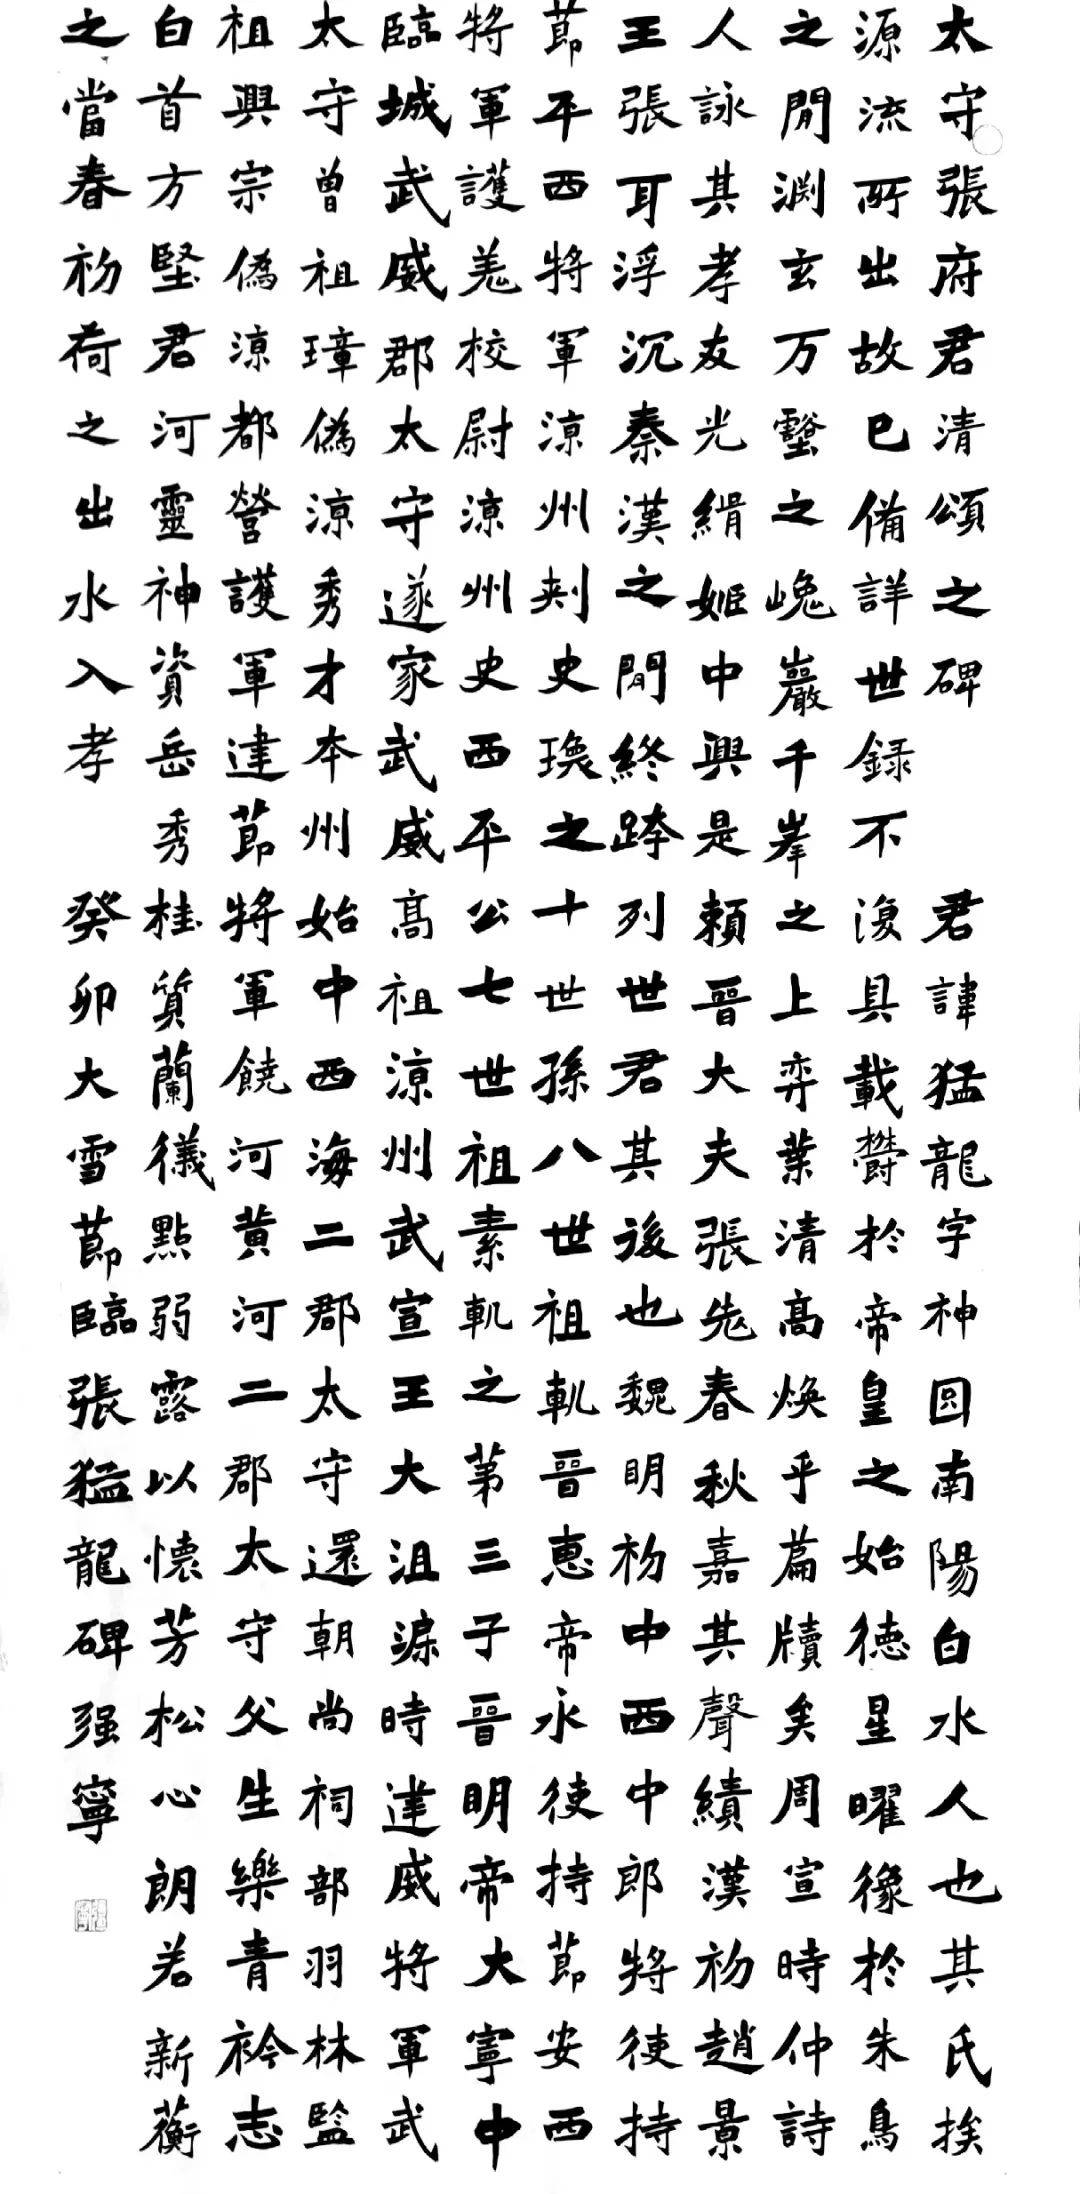 太守張府君清頌之碑　君諱猛龍字神囧南陽白水人也其氏挨
源流所出故已備詳世録不復具載欝於帝皇之始德星曜像於朱鳥
之閒渊玄万壑之嵬巖千峯之上弈葉清高煥乎篇牘矣周宣時仲詩
人詠其孝友光緝姬中興是賴晉大夫張老春秋嘉其聲績漢初趙景
王張耳浮沉秦漢之閒終跨列世君其後也魏明初中西中郎将使持
節平西将軍涼州刾史瑍之十世孫八世祖軌晉惠帝永使持節安西
将軍護羌校尉涼州史西平公七世祖素軌之第三子晉明帝大寧中
臨城武威郡太守遂家武威高祖涼州武宣王大沮渠時建威将軍武
太守曾祖璋偽涼秀才本州始中西海二郡太守還朝尚祠部羽林監
祖興宗偽涼都營護軍建節将軍饒河黃河二郡太守父生樂青衿志
白首方堅君河靈神資岳秀桂質蘭儀點弱露以懷芳松心朗若新蘅
之當春初荷之出水入孝　癸卯大雪節臨張猛龍碑强寧